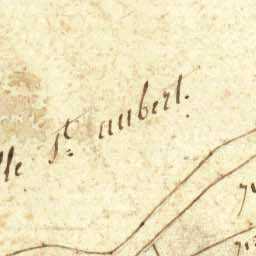 lle St. aubert.